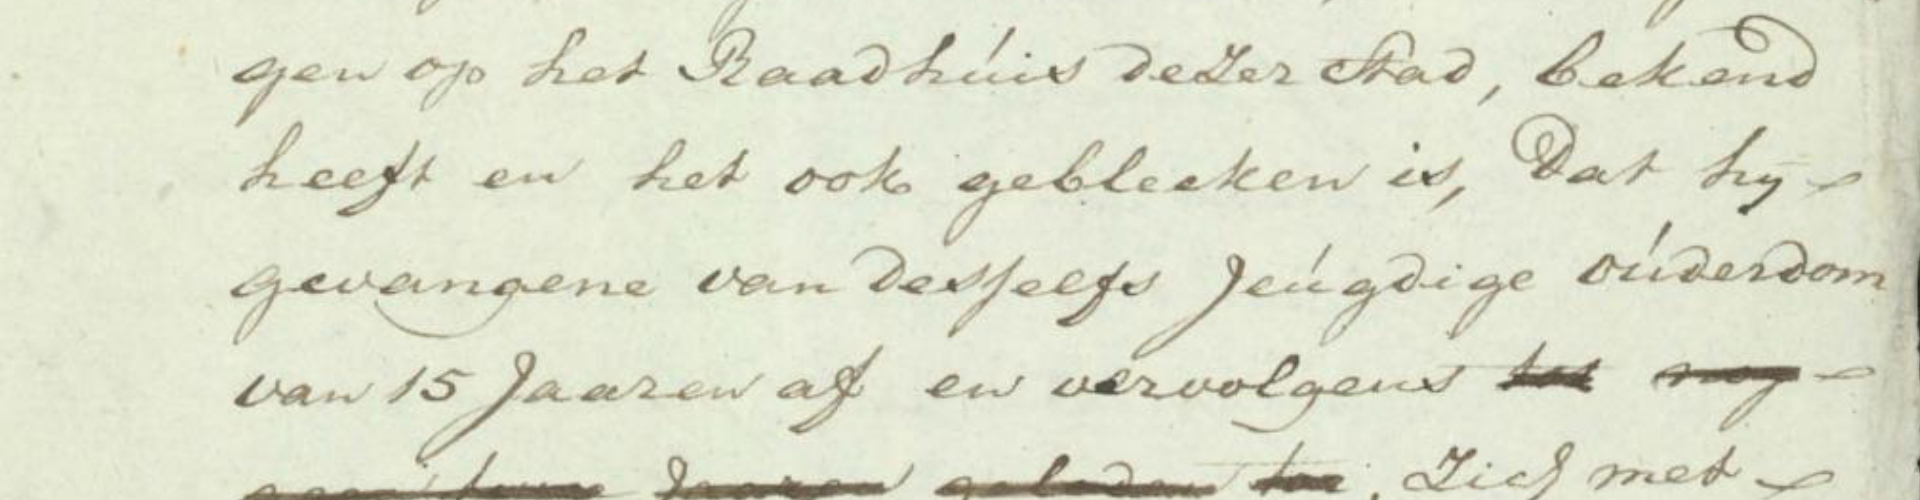 gen op het Raadhúis dezer Stad, bekend
heeft en het ook gebleeken is, Dat hy
gevangene van desselfs Jeúgdige oúderdom
van 15 Jaaren af en vervolgens tot
Jaaren geleden Zich met